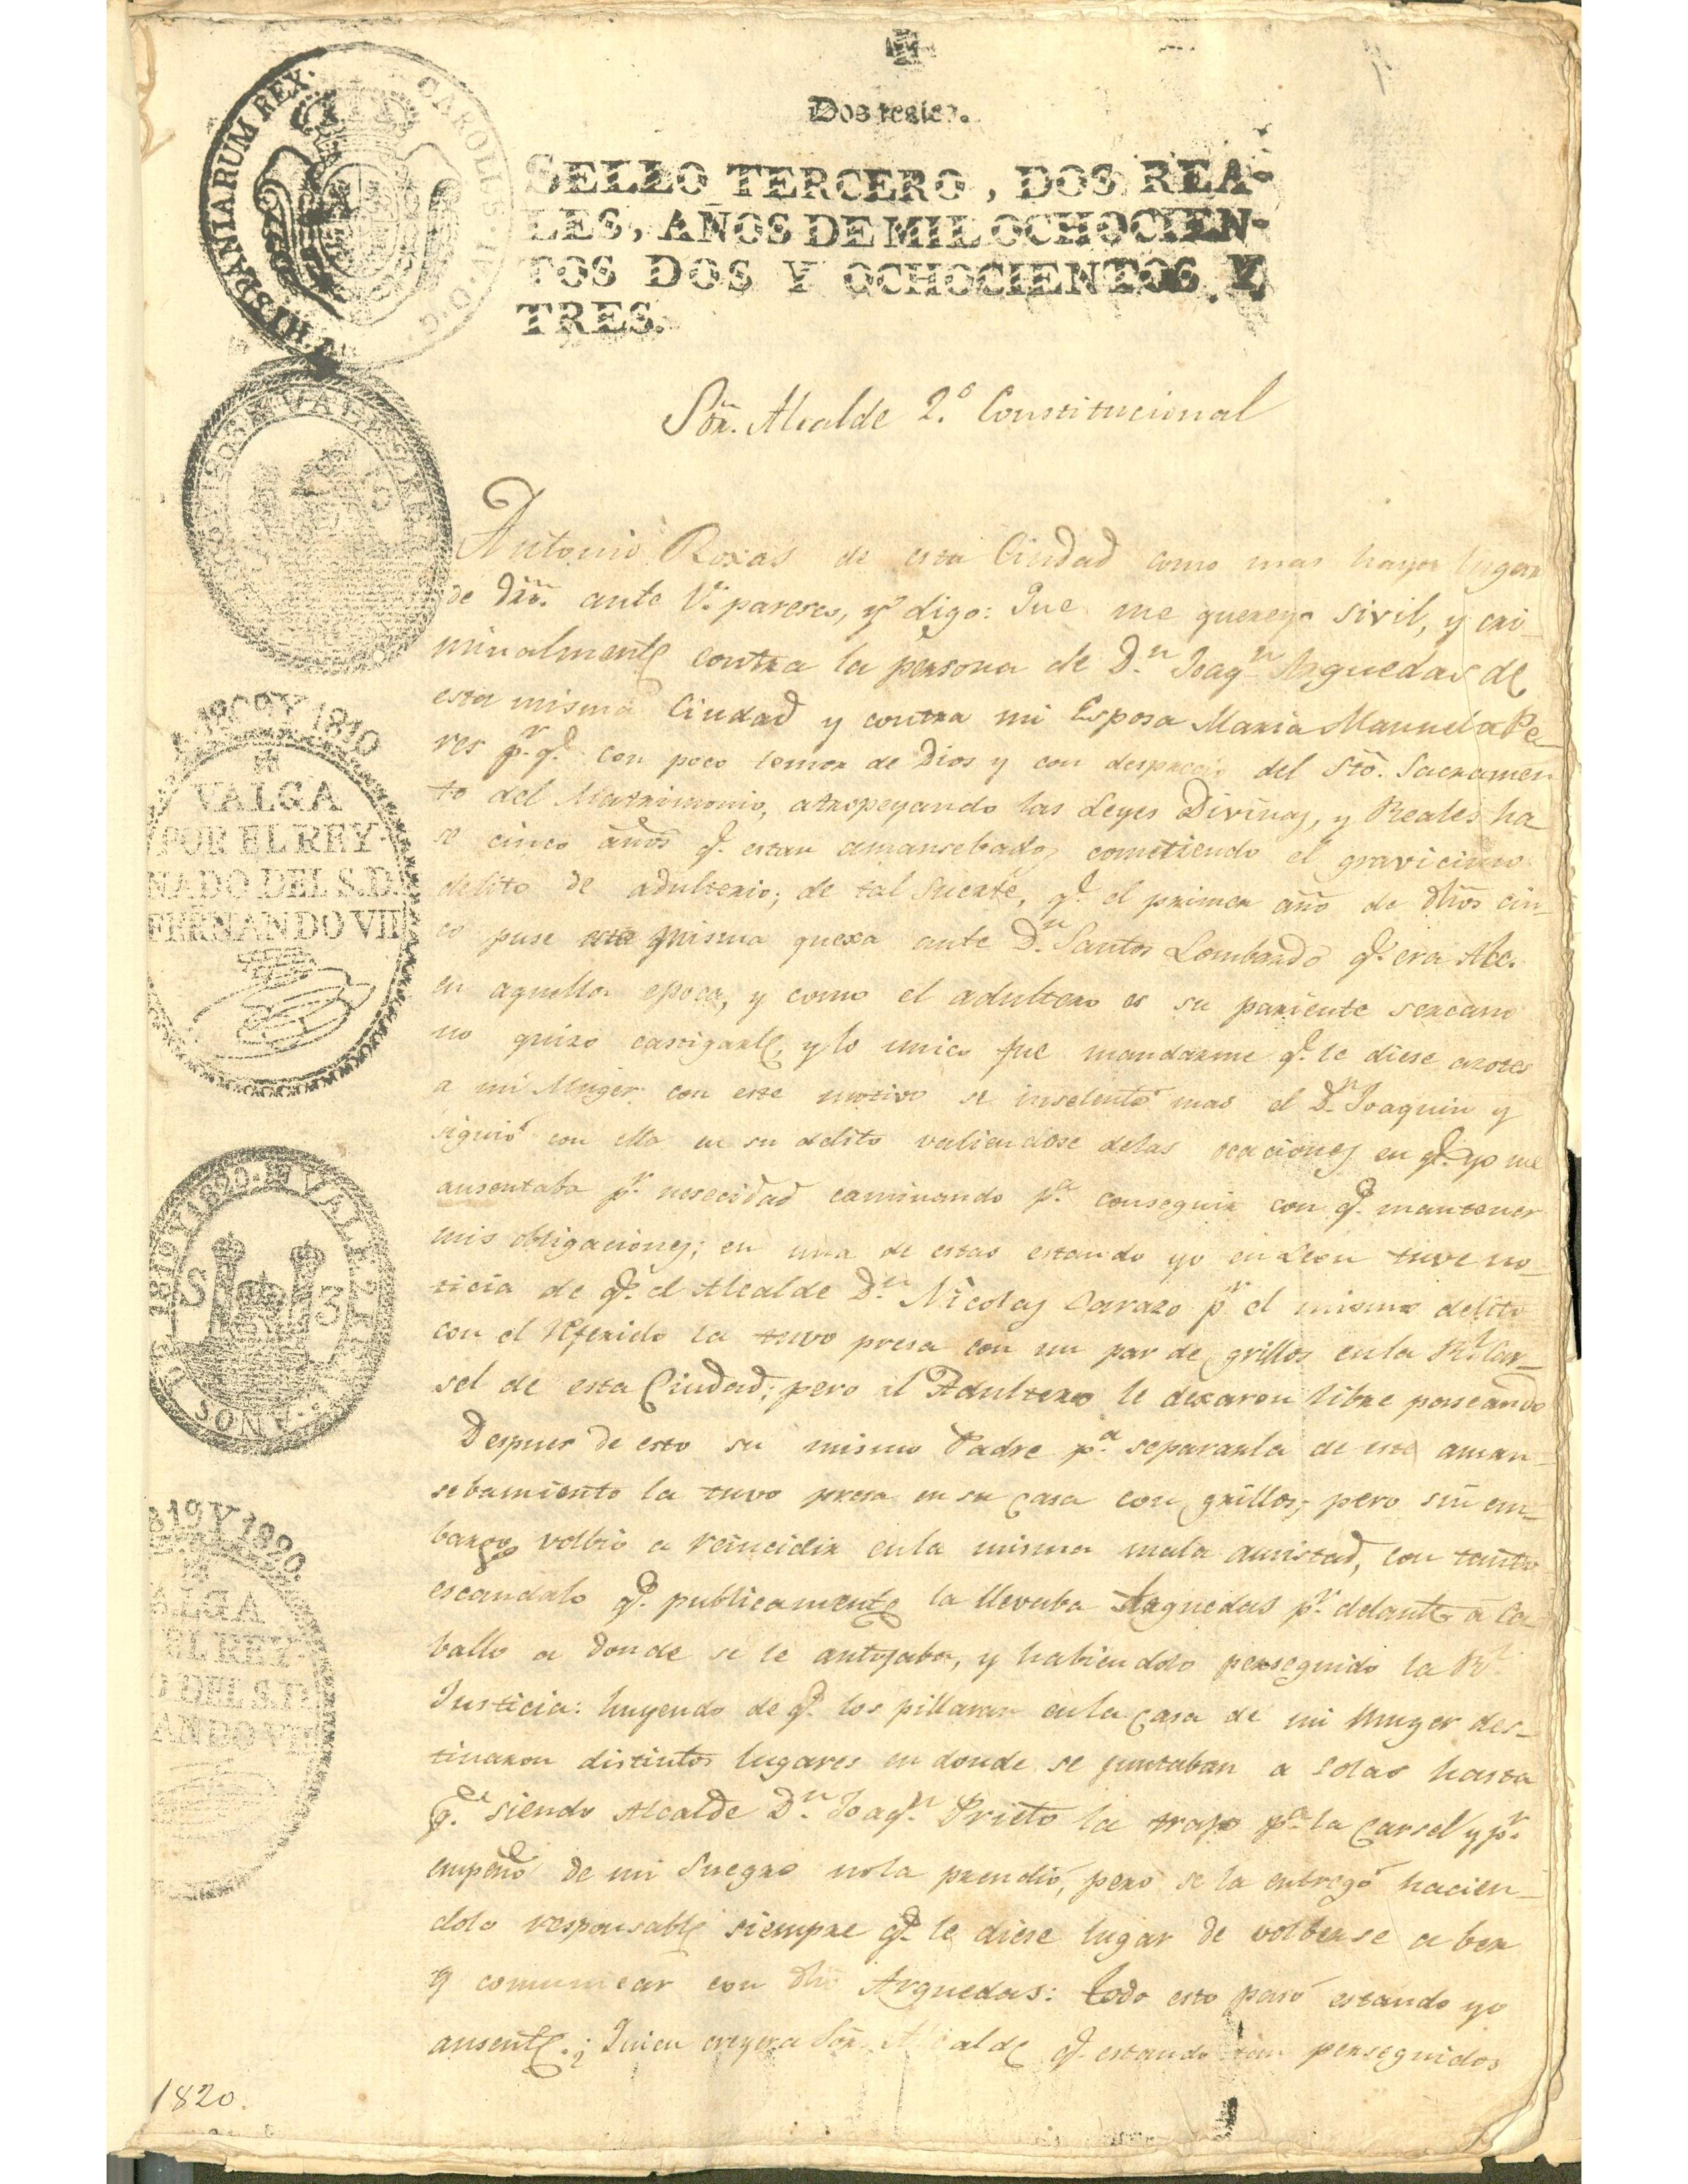 Dos reales.
SELLO TERCERO, DOS REA-
LES, AÑOS DE MIL OCHOCIEN-
TOS DOS Y OCHOCIENTOS Y
TRES.
CAROLUS·IV·D·G·
HISPANIARUM REX·
1809 Y 1810
VALGA
POR EL REY-
NADO DEL S.D.
FERNANDO VII
1819 Y 1820
AÑOS
S 3
1819 Y 1820.
ALGA
EL REY-
O DEL S.D.
ANDO VII
Sōr. Alcalde 2.º Constitucional
Antonio Roxas de esta Ciudad como mas haya lugar
de Dr̃o. ante V. paresco, y digo: Que mequereyo sivil, y cri-
minalmente contra la persona de D.n Joaq.n Arguedas de
esta misma Ciudad y contra mi Esposa Maria Manuela Pe-
res p.r q.e con poco temor de Dios y con desprecio del Sto. Sacramen
to del Matrimonio, atropeyando las Leyes Divinas, y Reales ha-
se cinco años q.e estan amansebados cometiendo el gravicimo
delito de adulterio; de tal suerte, q.e el primer año de dhos cin-
co puse esta misma quexa ante D.n Santos Lombardo q.e era Alc.
en aquella epoca, y como el adultero es su pariente sercano
no quizo castigarle, y lo unico fue mandarme q.e le diese azotes
a mi Muger con este motivo se insolentó mas el D.n Joaquin y
siguió con ella en su delito valiendose delas ocaciones en q.e yo me
ausentaba p.r nesecidad caminando p.a conseguir con q.e mantener
mis obligaciones; en una de estas estando yo en Leon tuve no-
ticia de q.e el Alcalde D.n Nicolas Carazo p.r el mismo delito
con el referido la tuvo presa con un par de grillos enla R.l Car-
sel de esta Ciudad; pero al Adultero le dexaron libre paseando
Despues de esto su mismo Padre p.a separarla de este aman-
sebamiento la tuvo presa en su casa con grillos; pero sin em-
bargo volbió a reincidir enla misma mala amistad, con tanto
escandalo q.e publicamente la llevaba Arguedas p.r delante a Ca-
ballo a donde se le antojaba, y habiendolo perseguido la R.l
Justicia: huyendo de q.e los pillaran enla casa de mi Muger des-
tinaron distintos lugares en donde se juntaban a solas hasta
q.e siendo Alcalde D.n Joaq.n Prieto la trajo p.a la Carsel y p.r
empeño de mi Suegro nola prendió, pero se la entregó hacien-
dolo responsable siempre q.e le diese lugar de volberse a ber
y comunicar con dho Arguedas: todo esto pasó estando yo
ausente. ¿Quien creyera Sōr. Alcalde q.e estando tan perseguidos
1820.